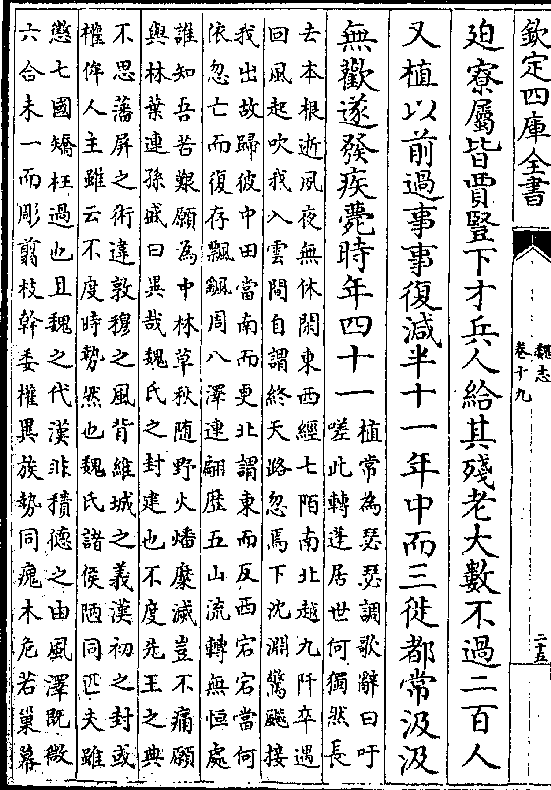 欽定四庫全書
魏志
卷十九
二十五
迫寮屬皆賈豎下才兵人給其殘老大數不過二百人
又植以前過事事復減半十一年中而三徙都常汲汲
無歡遂發疾薨時年四十一
植常為瑟瑟調歌辭曰吁
嗟此轉蓬居世何獨然長
去本根逝夙夜無休閒東西經七陌南北越九阡卒遇
回風起吹我入雲間自謂終天路忽焉下沈淵驚飈接
我出故歸彼中田當南而更北謂東而反西宕宕當何
依忽亡而復存飄颻周八澤連翩歷五山流轉無恒處
誰知吾苦艱願為中林草秋随野火燔糜滅豈不痛願
與林葉連孫盛曰異哉魏氏之封建也不度先王之典
不思藩屏之術違敦穆之風背維城之義漢初之封或
權侔人主雖云不度時勢然也魏氏諸侯陋同匹夫雖
懲七國矯枉過也且魏之代漢非積德之由風澤既微
六合未一而彫翦枝幹委權異族勢同瘣木危若巢幕